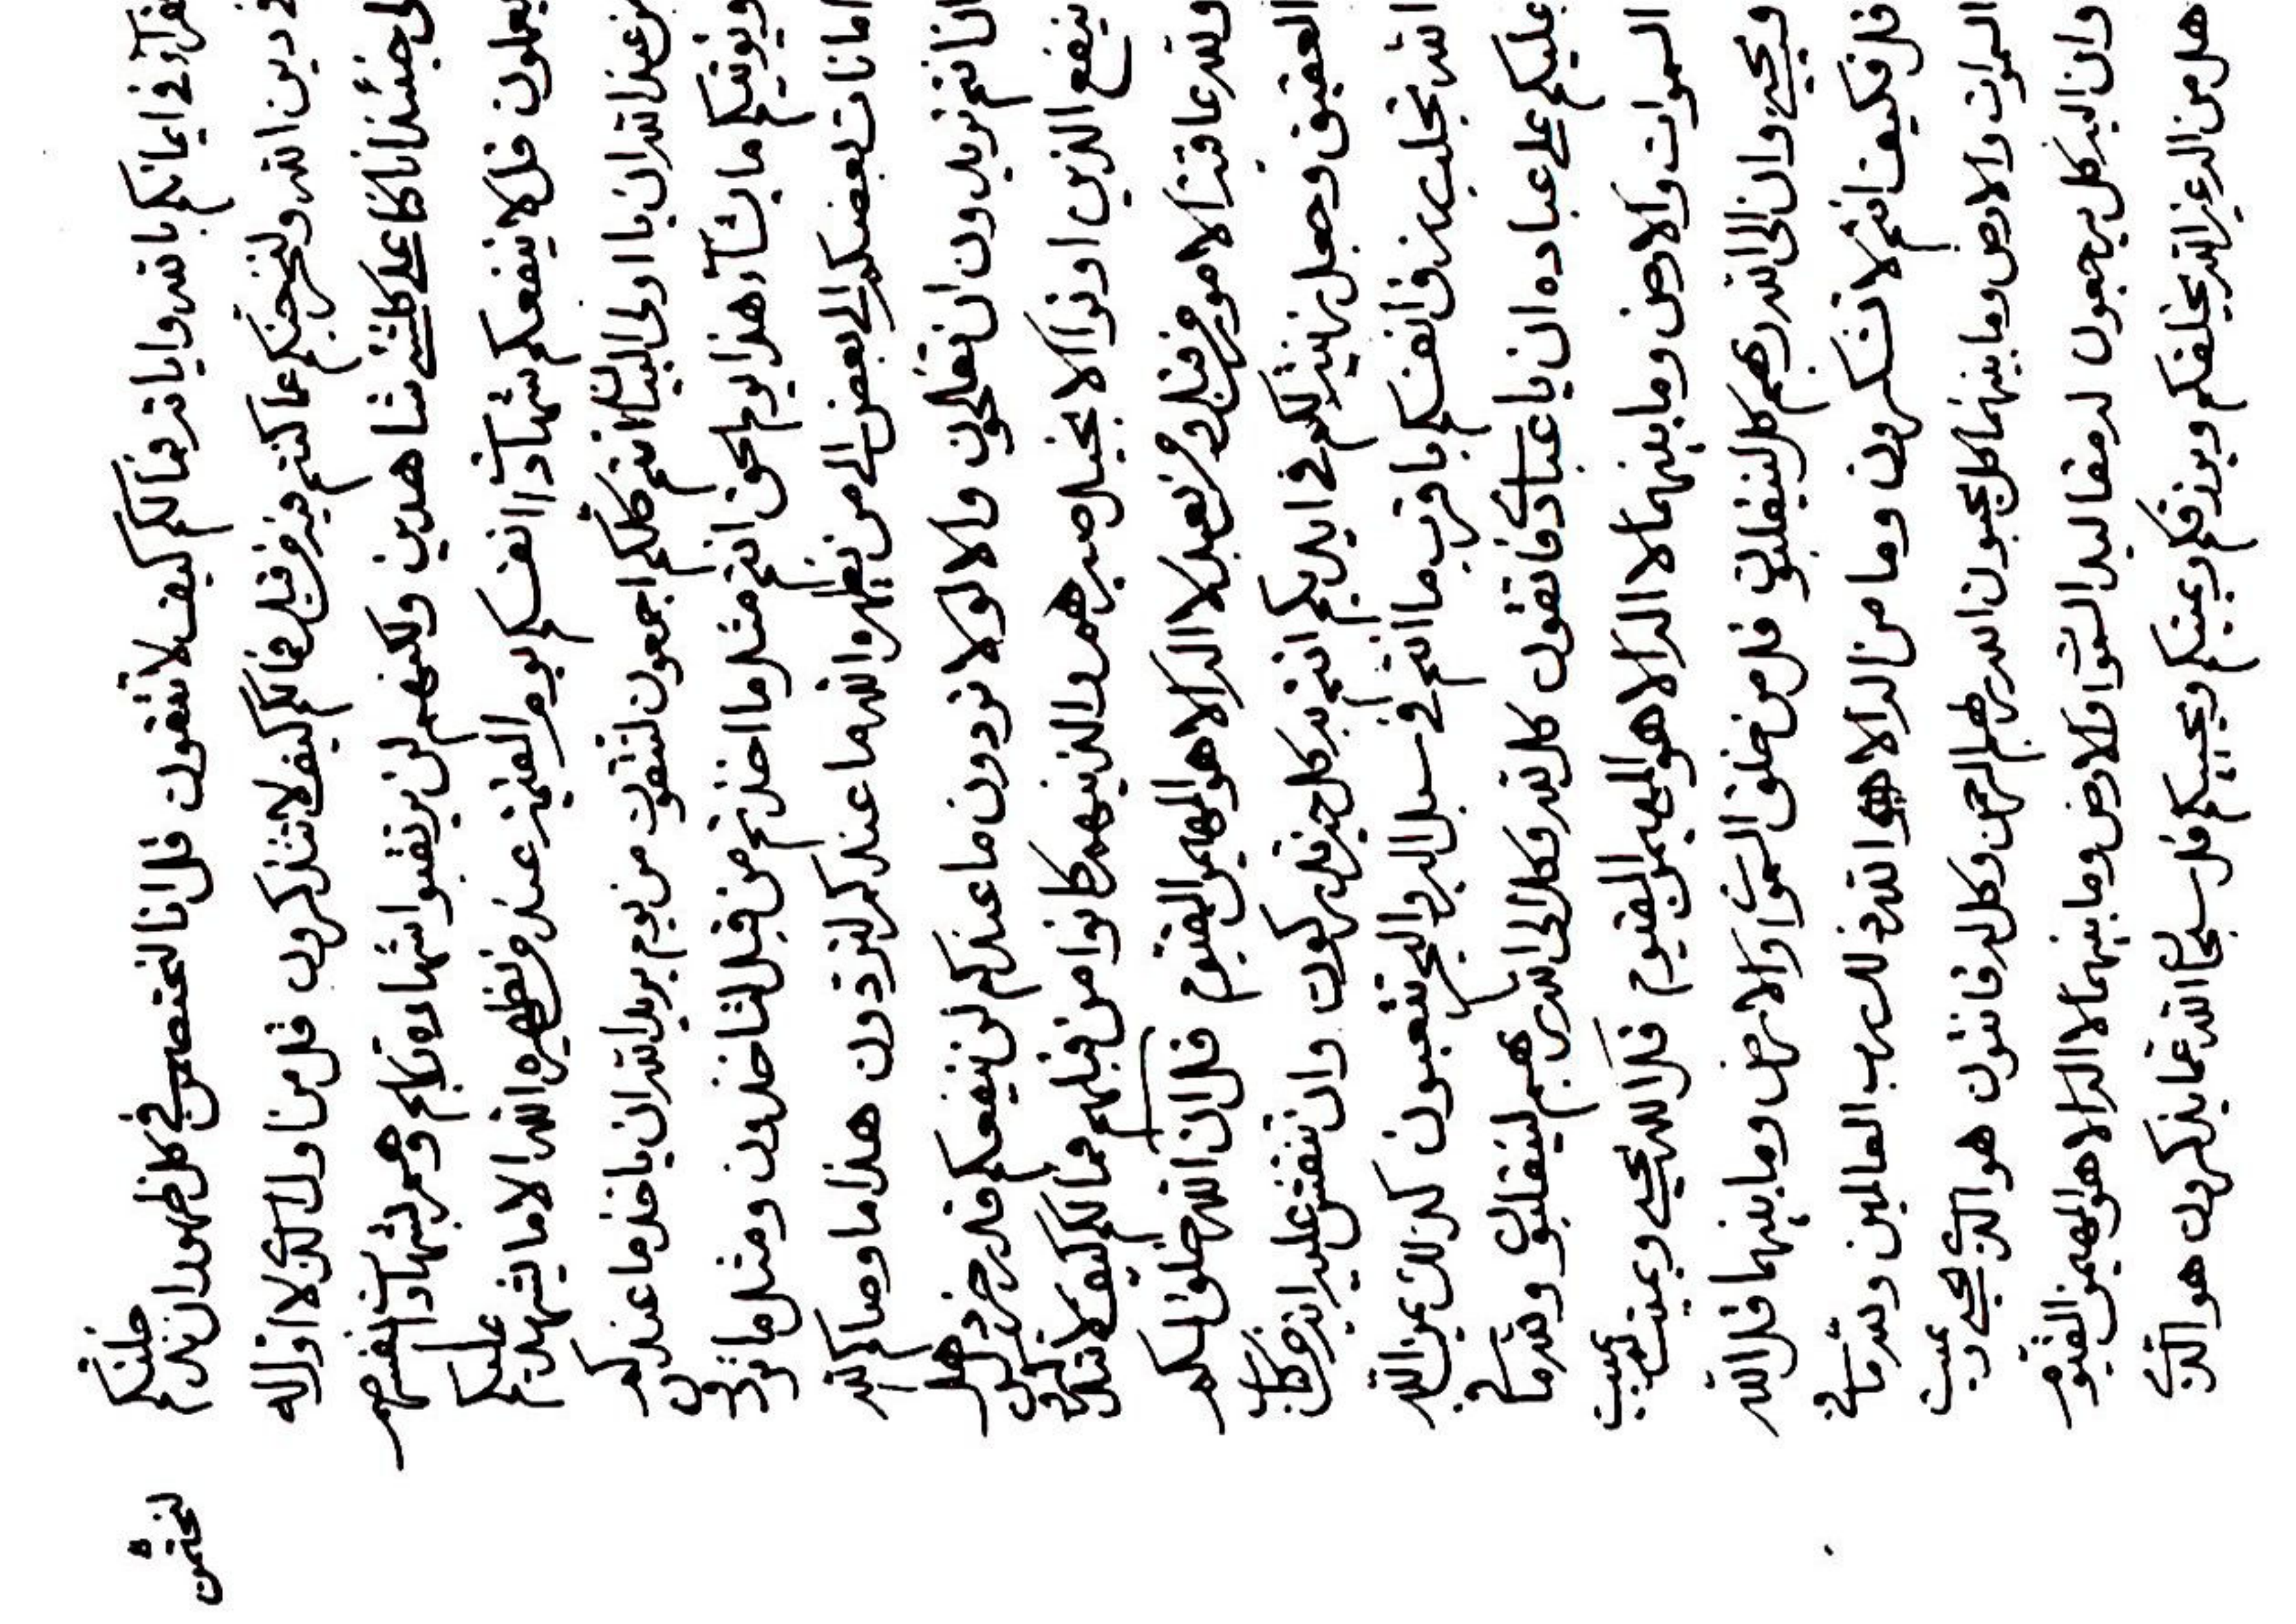 في ايمانكم بالله واياته فما لكم كيف لا تتقون قل انا في كل ظهور ان
دين الله ولنخرجنكم عما كنتم فيه من قبل فما لكم كيف لا تتذكرون قل من اول الذي لا اول له
حينئذ انا كنا على كلشئ شاهدين ولكنهم لن يرتقبوا شهادة ربكم وهم بشهادة انفسهم
يعملون قل لا ينفعكم شهادة انفسكم يوم القيمة عند من يظهره الله الا ما يشهد عليكم
من عند الله ان يا اولى البيان انتم كلكم اجمعون لتتقون من يوم يريد الله ان ياخذ ما عندكم
ويؤتيكم ما يشآء هذا يوم الحق انتم مثل ما اخذتم من قبل لتاخذون ومثل ما
امانات بعضكم الى بعض الى من يظهره الله ما عندكم لتردون هذا ما وصاكم الله
ان انتم تريدون ان تفلحون والا لو لا تردون ما عندكم لن ينفعكم قدر خردل هل
ينفع الذين اوتوا الانجيل صبرهم والذينهم كانوا من قبلهم فما لكم كيف لا تتذكرون
ولله عاقبة الامور من قبل ومن بعد لا اله الا هو المهيمن القيوم قل ان الله خلق لكم
العقيق وجعل لكم في ايديكم انتم به كل خير تدركون وان تنقش عليه
الله تجلب رزق انفسكم باقرب ما انتم في سبل البر والبحر تتعبون كذلك يمن الله
عليكم على عباده ان يا عباد فاتقون كل لله وكل الى الله ربهم لينقلبون ولله ما في
السموات والارض وما بينهما لا اله الا هو المهيمن القيوم قل الله يحيي ويميت ثم يميت
ويحيي وان الى الله ربهم كل لينقلبون قل من خلق السموات والارض وما بينهما قل الله
قل فكيف انتم لا تشكرون وما من اله الا هو الله ذلك رب العالمين ولله ما في
السموات والارض وما بينهما كل يحبون الله ربهم الرحمن وكل له قانتون هو الذي يحيي ويميت
وان اليه كل يرجعون له مقاليد السموات والارض وما بينهما لا اله الا هو المهيمن القيوم
هل من اله غير الله يخلقكم ويرزقكم ويميتكم ويحييكم قل سبحان الله عما يذكرون هو الذي